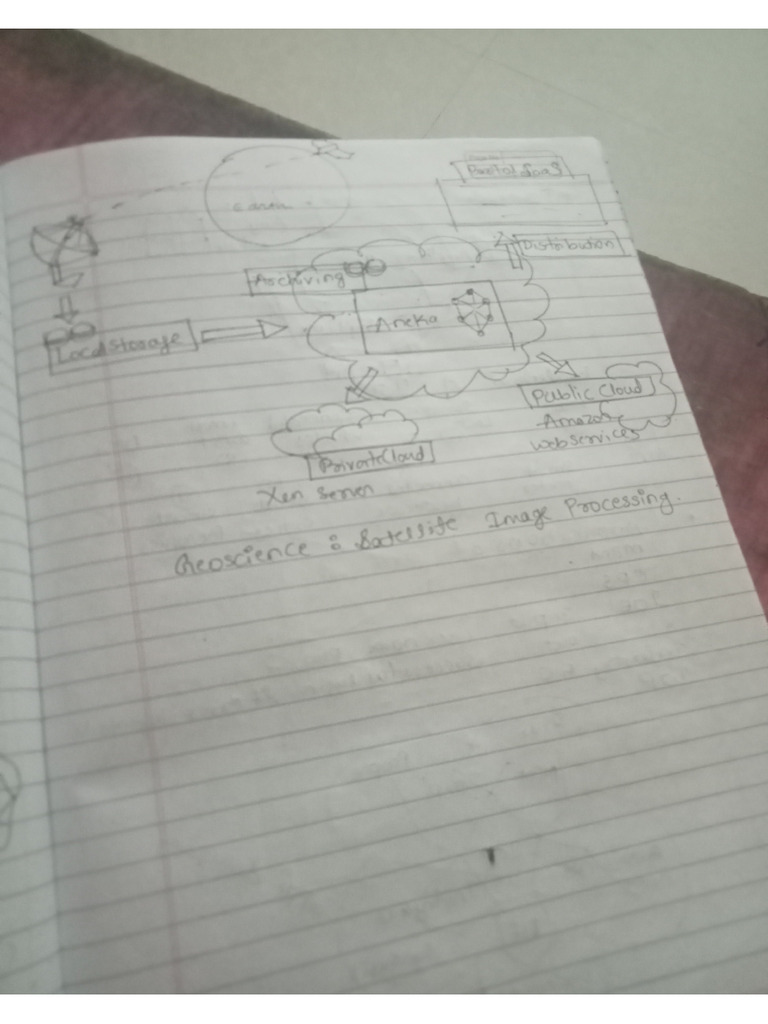 SaaS
Distribution
Archiving
Aneka
Local Storage
Public Cloud
Amazon
Webservices
Private Cloud
Xen Server
Geoscience : Satellite Image Processing.